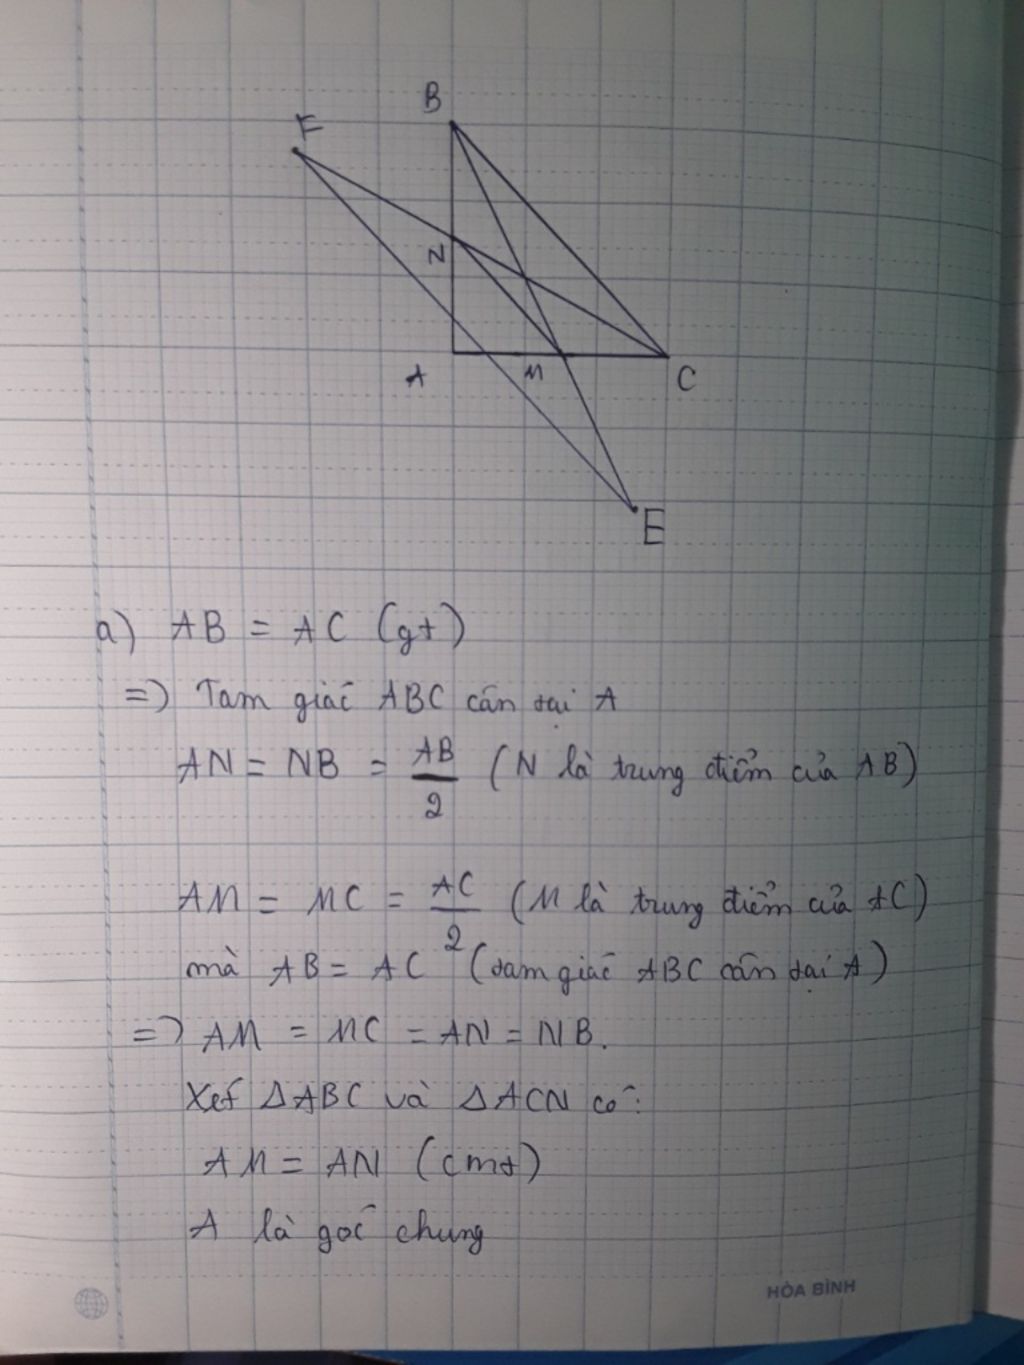 F
B
N
A
M
C
E
a) AB = AC (gt)
=) Tam giác ABC cân tại A
AN = NB = AB/2 (N là trung điểm của AB)
AM = MC = AC/2 (M là trung điểm của AC)
mà AB = AC (tam giác ABC cân tại A)
=) AM = MC = AN = NB.
Xét ΔABC và ΔACN có:
AM = AN (cmt)
A là góc chung
HÒA BÌNH